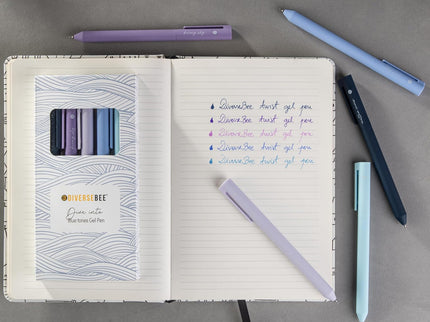 DiverseBee twist gel pen
DiverseBee twist gel pen
DiverseBee twist gel pen
DiverseBee twist gel pen
DiverseBee twist gel pen
DIVERSEBEE
Dive into
Blue tones Gel Pen